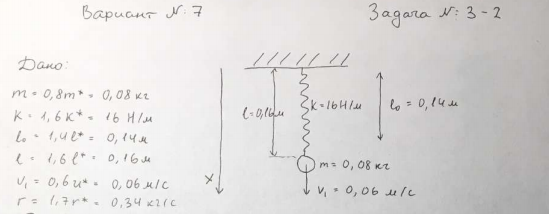 Вариант №: 7
Задача №: 3-2
Дано:
m = 0,8m* = 0,08 кг
K = 1,6K* = 16 Н/м
l₀ = 1,4l* = 0,14 м
l = 1,6l* = 0,16 м
V₁ = 0,6u* = 0,06 м/с
r = 1,7r* = 0,34 кг/с
X
l=0,16м
K=16Н/м
l₀ = 0,14 м
m = 0,08 кг
V₁ = 0,06 м/с